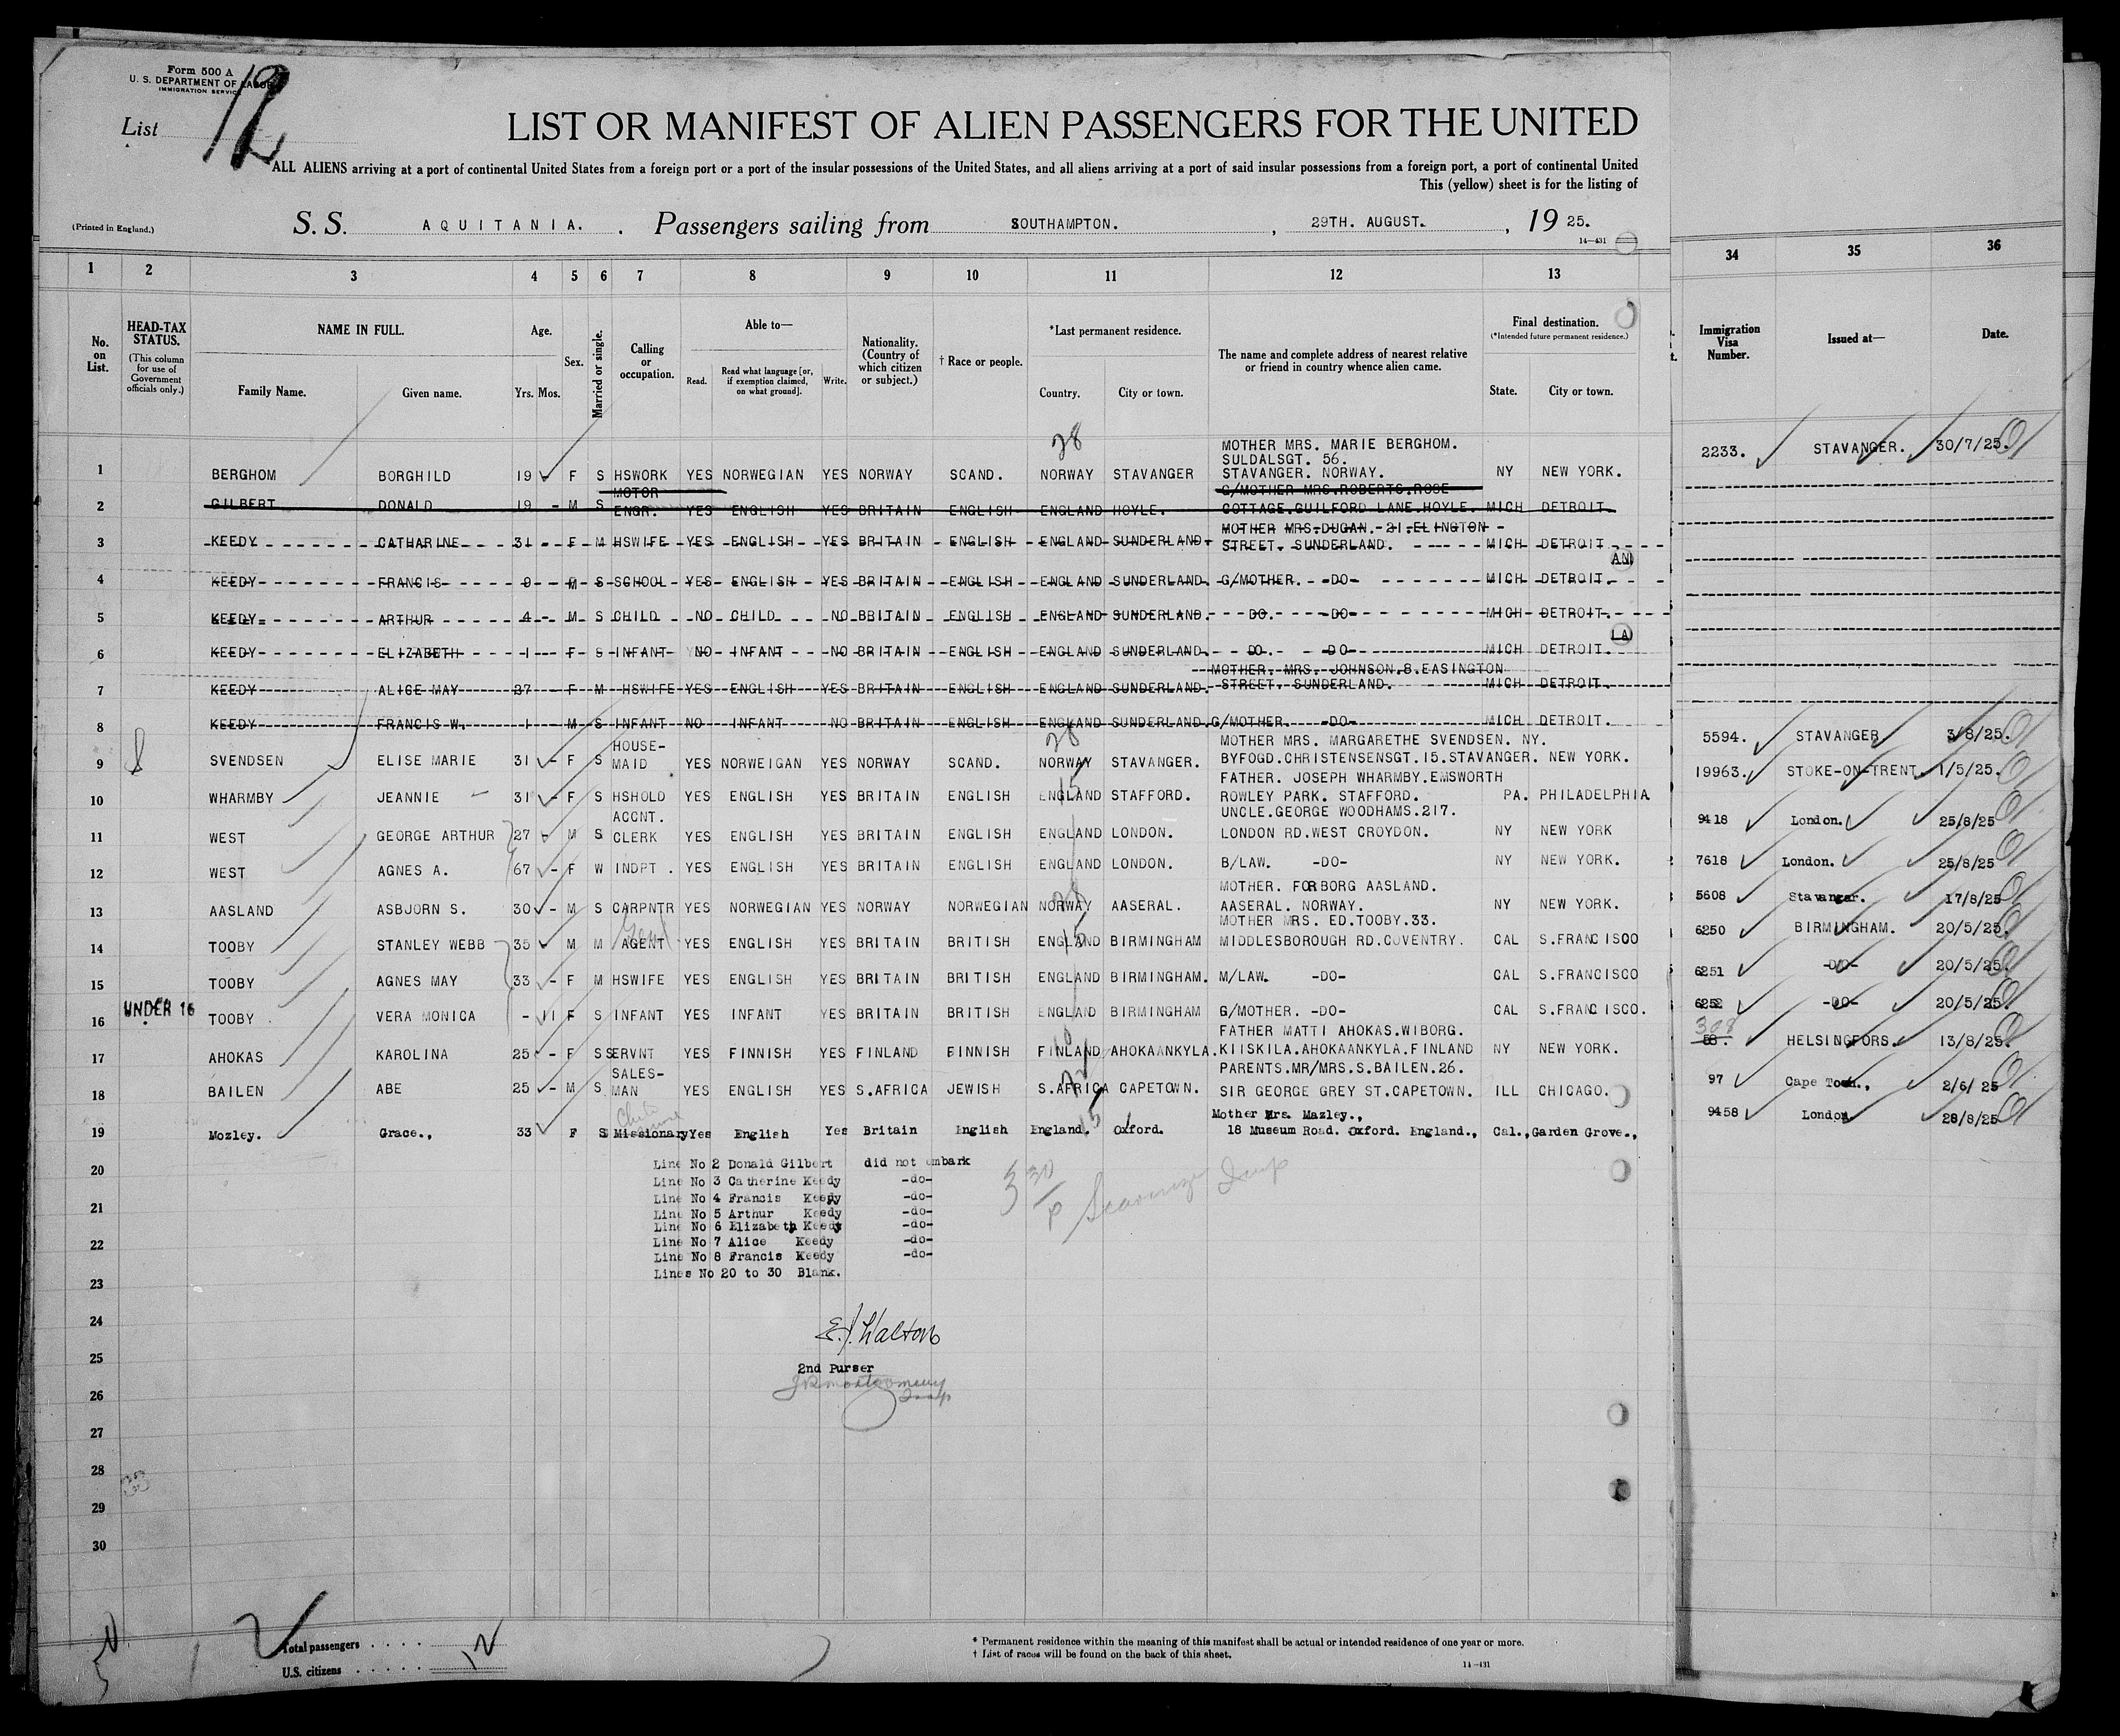 Form 500 A
U. S. DEPARTMENT OF LABOR
IMMIGRATION SERVICE
List 12
LIST OR MANIFEST OF ALIEN PASSENGERS FOR THE UNITED
ALL ALIENS arriving at a port of continental United States from a foreign port or a port of the insular possessions of the United States, and all aliens arriving at a port of said insular possessions from a foreign port, a port of continental United
This (yellow) sheet is for the listing of
(Printed in England.)
S. S. AQUITANIA. . Passengers sailing from SOUTHAMPTON. , 29TH. AUGUST. , 19 25.
14—431
1 2 3 4 5 6 7 8 9 10 11 12 13 34 35 36
No. on List.
HEAD-TAX STATUS.
(This column for use of Government officials only.)
NAME IN FULL.
Family Name. Given name.
Age.
Yrs. Mos.
Sex.
Married or single.
Calling or occupation.
Able to—
Read. Read what language [or, if exemption claimed, on what ground]. Write.
Nationality. (Country of which citizen or subject.)
† Race or people.
*Last permanent residence.
Country. City or town.
The name and complete address of nearest relative or friend in country whence alien came.
Final destination.
(*Intended future permanent residence.)
State. City or town.
Immigration Visa Number.
Issued at—
Date.
28
MOTHER MRS. MARIE BERGHOM.
SULDALSGT. 56.
1 BERGHOM BORGHILD 19 F S HSWORK YES NORWEGIAN YES NORWAY SCAND. NORWAY STAVANGER STAVANGER. NORWAY. NY NEW YORK. 2233. STAVANGER. 30/7/25.
MOTOR G/MOTHER MRS.ROBERTS.ROSE
2 GILBERT DONALD 19 - M S ENGR. YES ENGLISH YES BRITAIN ENGLISH ENGLAND HOYLE. COTTAGE.GUILFORD LANE.HOYLE. MICH DETROIT.
MOTHER MRS.DUGAN. 21.ELINGTON
3 KEEDY CATHARINE 31 - F M HSWIFE YES ENGLISH YES BRITAIN ENGLISH ENGLAND SUNDERLAND. STREET. SUNDERLAND. MICH DETROIT
4 KEEDY FRANCIS 9 - M S SCHOOL YES ENGLISH YES BRITAIN ENGLISH ENGLAND SUNDERLAND. G/MOTHER. -DO- MICH DETROIT.
5 KEEDY ARTHUR 4 - M S CHILD NO CHILD NO BRITAIN ENGLISH ENGLAND SUNDERLAND. DO. -DO- MICH DETROIT.
6 KEEDY ELIZABETH 1 F S INFANT NO INFANT NO BRITAIN ENGLISH ENGLAND SUNDERLAND. DO. -DO- MICH DETROIT.
MOTHER. MRS. JOHNSON.8.EASINGTON
7 KEEDY ALICE MAY 27 F M HSWIFE YES ENGLISH YES BRITAIN ENGLISH ENGLAND SUNDERLAND. STREET. SUNDERLAND. MICH DETROIT.
8 KEEDY FRANCIS W. 1 M S INFANT NO INFANT NO BRITAIN ENGLISH ENGLAND SUNDERLAND. G/MOTHER. -DO- MICH DETROIT.
28
HOUSE- MOTHER MRS. MARGARETHE SVENDSEN. NY.
9 SVENDSEN ELISE MARIE 31 - F S MAID YES NORWEIGAN YES NORWAY SCAND. NORWAY STAVANGER. BYFOGD.CHRISTENSENSGT.15.STAVANGER. NEW YORK. 5594. STAVANGER 3/8/25.
15
FATHER. JOSEPH WHARMBY.EMSWORTH
10 WHARMBY JEANNIE 31 - F S HSHOLD YES ENGLISH YES BRITAIN ENGLISH ENGLAND STAFFORD. ROWLEY PARK. STAFFORD. PA. PHILADELPHIA 19963. STOKE-ON-TRENT. 1/5/25.
ACCNT. UNCLE.GEORGE WOODHAMS.217.
11 WEST GEORGE ARTHUR 27 M S CLERK YES ENGLISH YES BRITAIN ENGLISH ENGLAND LONDON. LONDON RD.WEST CROYDON. NY NEW YORK 9418 London. 25/8/25
12 WEST AGNES A. 67 - F W INDPT . YES ENGLISH YES BRITAIN ENGLISH ENGLAND LONDON. B/LAW. -DO- NY NEW YORK. 7618 London. 25/8/25
28
MOTHER. FORBORG AASLAND.
13 AASLAND ASBJORN S. 30 - M S CARPNTR YES NORWEGIAN YES NORWAY NORWEGIAN NORWAY AASERAL. AASERAL. NORWAY. NY NEW YORK. 5608 Stavanger. 17/8/25
15
MOTHER MRS. ED.TOOBY.33.
14 TOOBY STANLEY WEBB 35 M M AGENT YES ENGLISH YES BRITAIN BRITISH ENGLAND BIRMINGHAM MIDDLESBOROUGH RD.COVENTRY. CAL S.FRANCISCO 6250 BIRMINGHAM. 20/5/25.
15 TOOBY AGNES MAY 33 - F M HSWIFE YES ENGLISH YES BRITAIN BRITISH ENGLAND BIRMINGHAM. M/LAW. -DO- CAL S.FRANCISCO 6251 -DO- 20/5/25.
16 UNDER 16 TOOBY VERA MONICA - 11 F S INFANT YES INFANT YES BRITAIN BRITISH ENGLAND BIRMINGHAM G/MOTHER. -DO- CAL S.FRANCISCO. 6252 -DO- 20/5/25.
308
FATHER MATTI AHOKAS.WIBORG.
17 AHOKAS KAROLINA 25 - F S SERVNT YES FINNISH YES FINLAND FINNISH FINLAND AHOKAANKYLA. KIISKILA.AHOKAANKYLA.FINLAND NY NEW YORK. 58. HELSINGFORS. 13/8/25.
SALES- PARENTS.MR/MRS.S.BAILEN.26.
18 BAILEN ABE 25 - M S MAN YES ENGLISH YES S.AFRICA JEWISH S.AFRICA CAPETOWN. SIR GEORGE GREY ST.CAPETOWN. ILL CHICAGO. 97 Cape Town., 2/6/25
15
Mother Mrs. Mazley.,
19 Mozley. Grace., 33 F S Missionary Yes English Yes Britain English England. Oxford. 18 Museum Road. Oxford. England., Cal., Garden Grove., 9458 London 28/8/25
20 Line No 2 Donald Gilbert did not embark
Line No 3 Catherine Keedy -do-
Line No 4 Francis Keedy -do-
21 Line No 5 Arthur Keedy -do-
Line No 6 Elizabeth Keedy -do-
22 Line No 7 Alice Keedy -do-
Line No 8 Francis Keedy -do-
23 Lines No 20 to 30 Blank.
24 E. J. Walton
25 2nd Purser
26
27
28
29
30
Total passengers . . . . 12
U.S. citizens . . . . .
* Permanent residence within the meaning of this manifest shall be actual or intended residence of one year or more.
† List of races will be found on the back of this sheet.
14—431